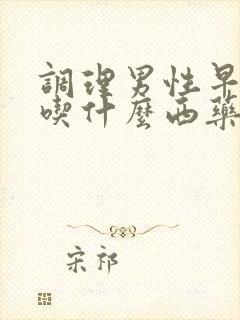 調理男性早
喫什麼西藥
宋祁